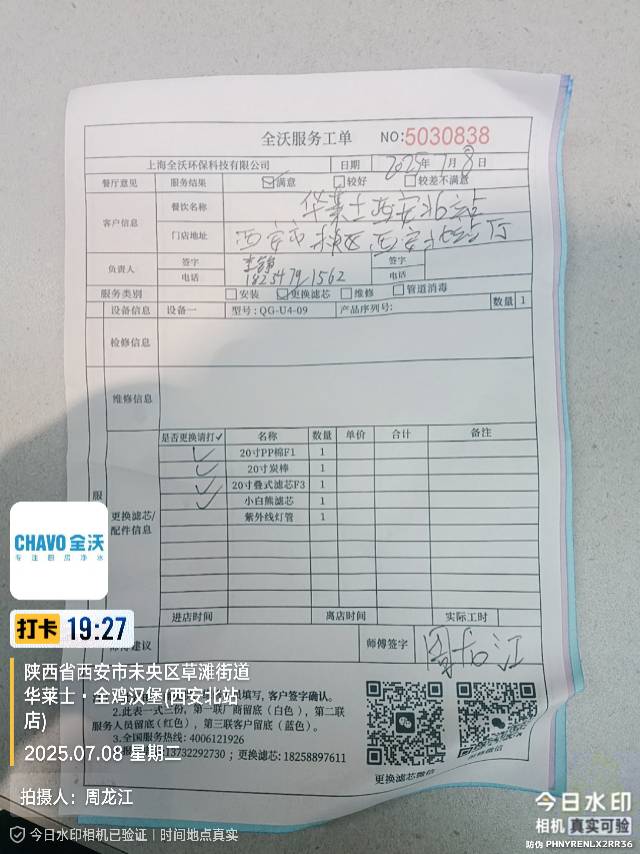 全沃服务工单 NO:5030838
上海全沃环保科技有限公司 日期 2025年7月8日
餐厅意见 服务结果 满意 较好 较差不满意
客户信息 餐饮名称 华莱士西安北客站
门店地址 西安市
负责人 签字 签字
电话 18254791562 电话
服务类别 安装 更换滤芯 维修 管道消毒
设备信息 设备一 型号:QG-U4-09 产品序列号: 数量 1
检修信息
维修信息
是否更换请打✓ 名称 数量 单价 合计 备注
✓ 20寸PP棉F1 1
✓ 20寸炭棒 1
✓ 20寸叠式滤芯F3 1
✓ 小白熊滤芯 1
紫外线灯管 1
服
更换滤芯/
配件信息
进店时间 离店时间 实际工时
师傅建议 师傅签字
填写，客户签确认。
2.此表一式三份，第一联厂商留底（白色），第二联
服务人员留底（红色），第三联客户留底（蓝色）。
3.全国服务热线：4006121926
13732292730；更换滤芯：18258897611
更换滤芯微信
CHAVO 全沃
专注厨房净水
打卡 19:27
陕西省西安市未央区草滩街道
华莱士·全鸡汉堡(西安北站
店)
2025.07.08 星期二
拍摄人：周龙江
今日水印相机已验证 | 时间地点真实
今日水印
相机 真实可验
防伪 PHNYRENLX2RR36